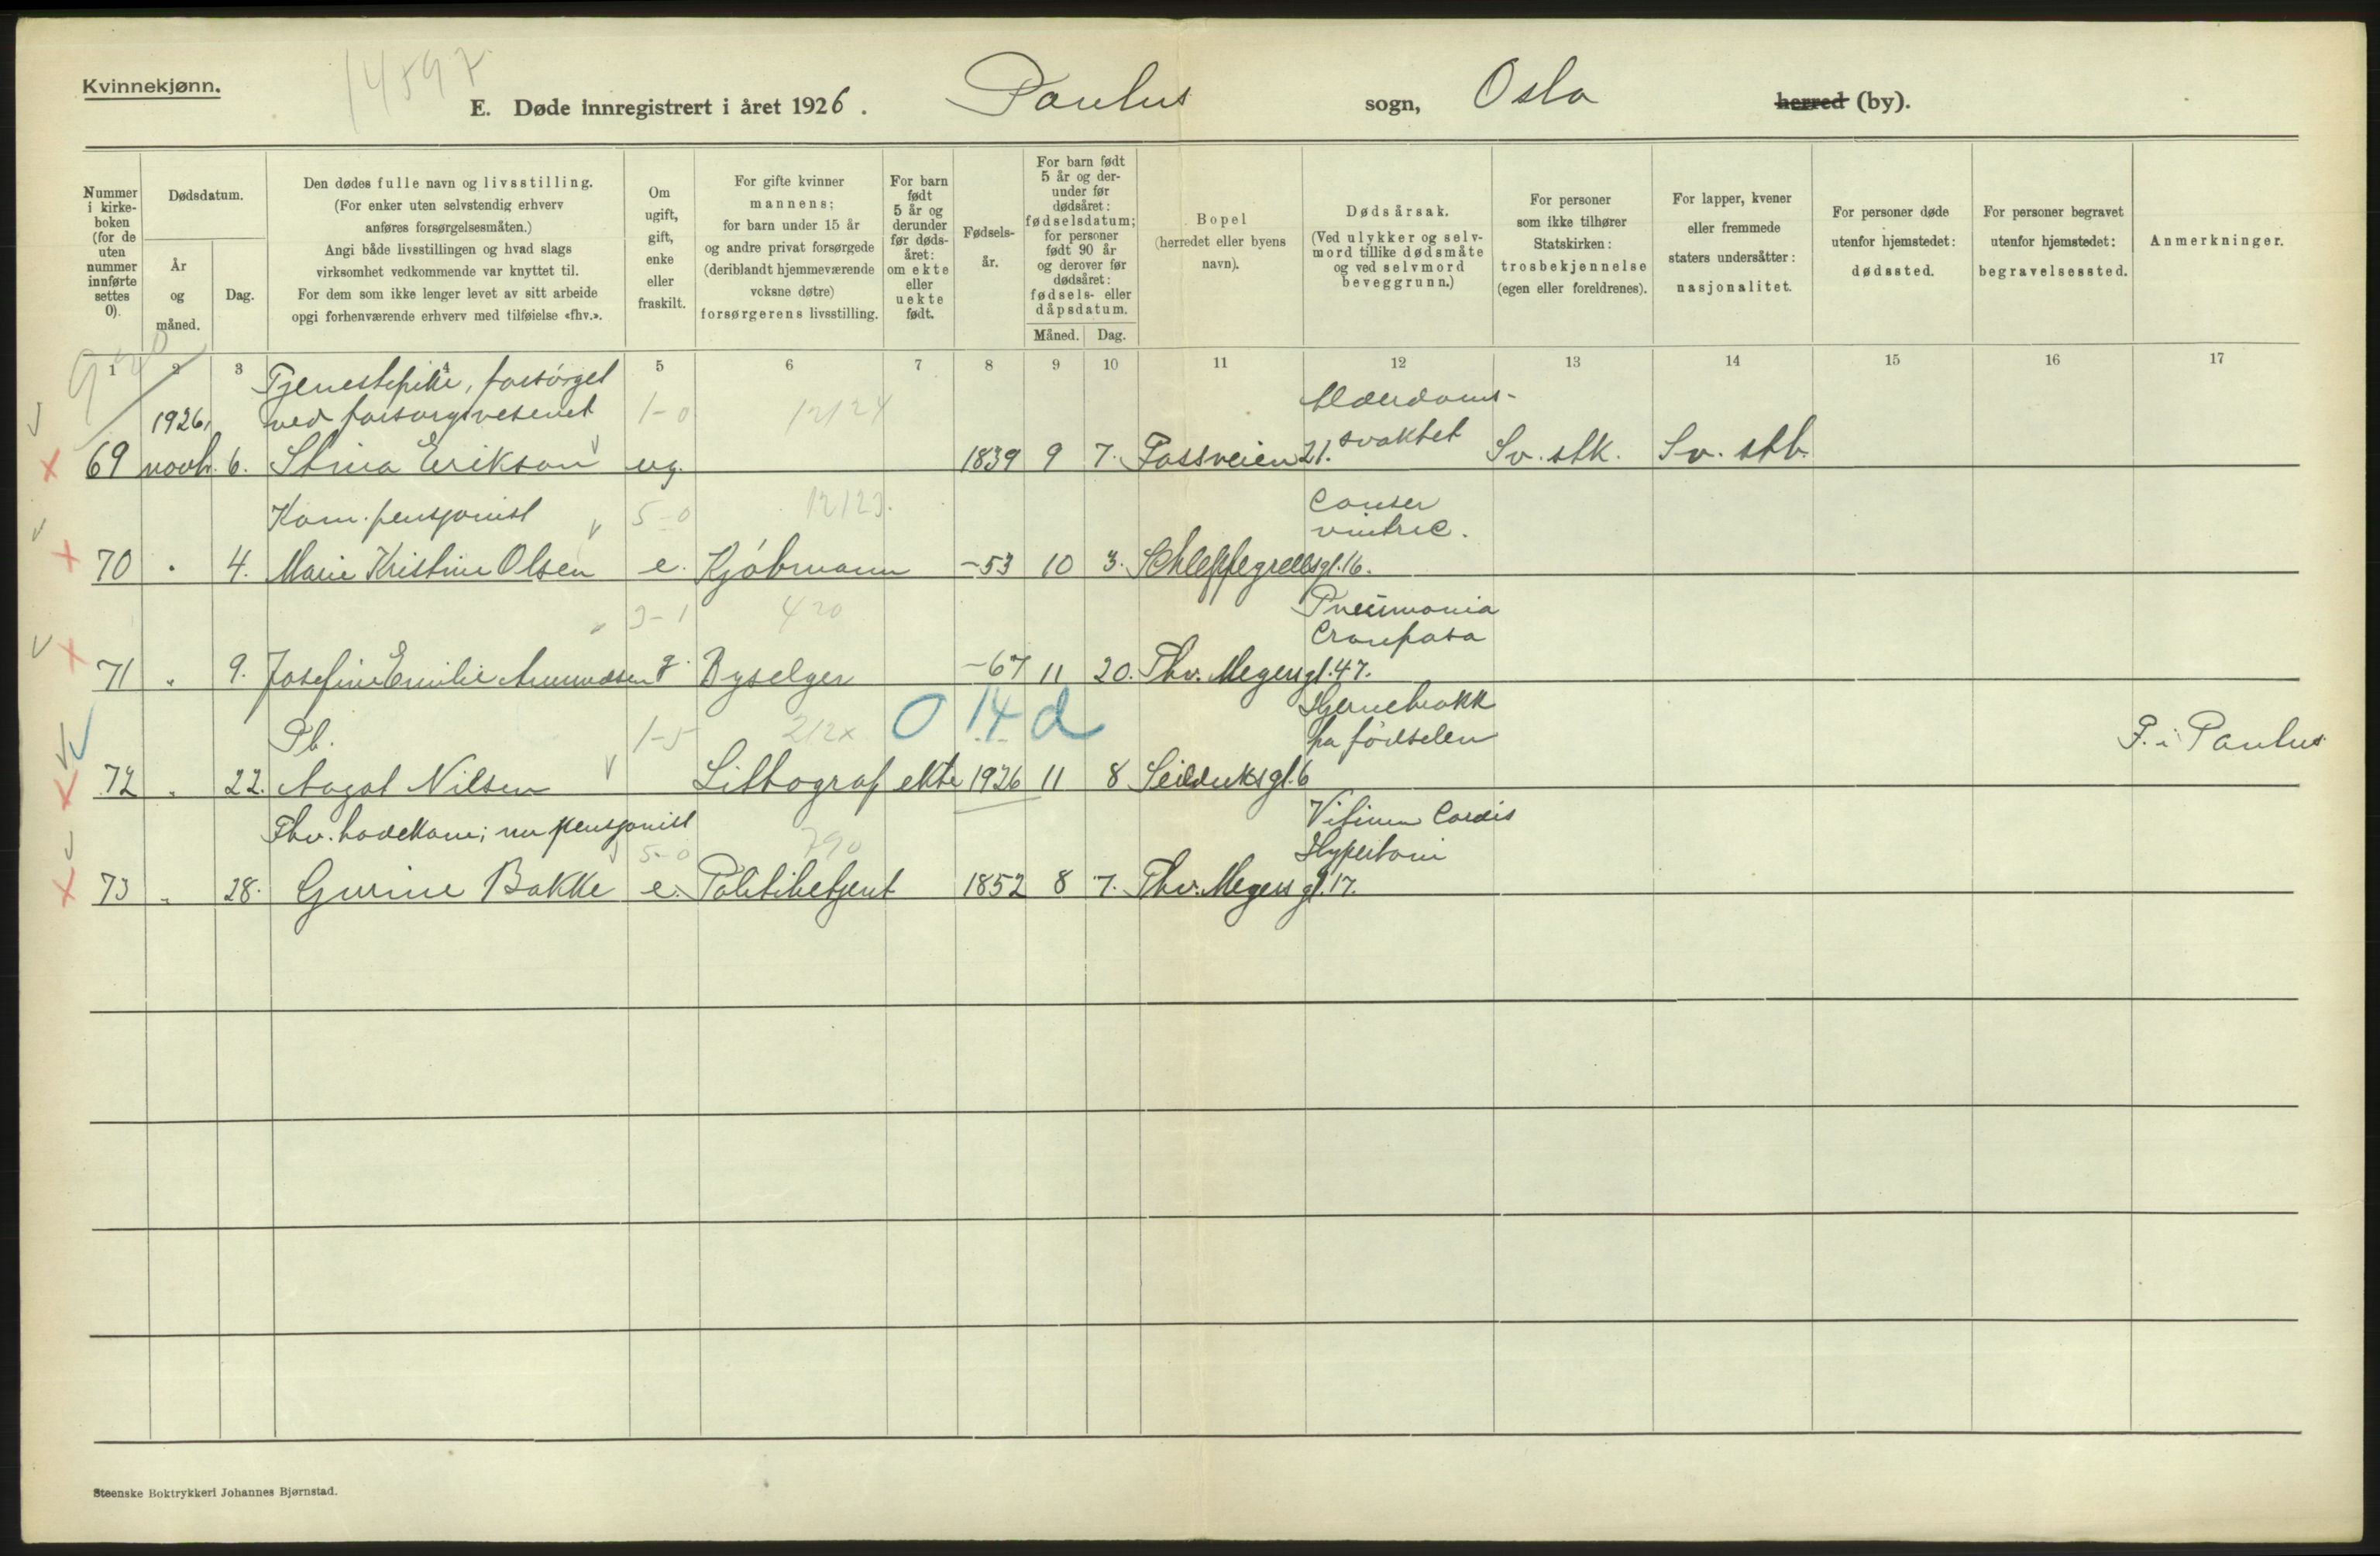 Kvinnekjønn.
14597
E. Døde innregistrert i året 1926. Paulus sogn, Oslo herred (by).
Nummer i kirke-boken (for de uten nummer innførte settes 0).
Dødsdatum.
År og måned.
Dag.
Den dødes fulle navn og livsstilling.
(For enker uten selvstendig erhverv
anføres forsørgelsesmåten.)
Angi både livsstillingen og hvad slags
virksomhet vedkommende var knyttet til.
For dem som ikke lenger levet av sitt arbeide
opgi forhenværende erhverv med tilføielse «fhv.».
Om ugift, gift, enke eller fraskilt.
For gifte kvinner
mannens;
for barn under 15 år
og andre privat forsørgede
(deriblandt hjemmeværende
voksne døtre)
forsørgerens livsstilling.
For barn født 5 år og derunder før døds-året: om ekte eller uekte født.
Fødsels-år.
For barn født 5 år og der-under før dødsåret: fødselsdatum; for personer født 90 år og derover før dødsåret: fødsels- eller dåpsdatum.
Måned. Dag.
Bopel
(herredet eller byens
navn).
Dødsårsak.
(Ved ulykker og selv-
mord tillike dødsmåte
og ved selvmord
beveggrunn.)
For personer
som ikke tilhører
Statskirken:
trosbekjennelse
(egen eller foreldrenes).
For lapper, kvener
eller fremmede
staters undersåtter:
nasjonalitet.
For personer døde
utenfor hjemstedet:
dødssted.
For personer begravet
utenfor hjemstedet:
begravelsessted.
Anmerkninger.
1 2 3 5 6 7 8 9 10 11 12 13 14 15 16 17
Tjenestepike, forsørget
1926. ved forsorgsvesenet 1-0 12124 Alderdoms-
69 novb. 6. Stina Erikson ug. 1839 9 7. Fossveien 21. svakhet Sv. stk. Sv. stb.
Kom. pensjonist 5-0 1212). Canser
ventric.
70 " 4. Marie Kristine Olsen e. Kjøbmann -53 10 3. Schleppegrellsgt. 16.
3-1 420 Pneumonia
Crouposa
71 " 9. Josefine Emilie Amundsen g. Byselger -67 11 20. Thv. Meyersgt. 47.
0 14 d Hjernebrokk
Pb. 1-5 212x fra fødselen F. i Paulus
72 " 22. Aagot Nilsen Lithograf ekte 1926 11 8 Seilduksgt. 6
Fhv. badekone; nu pensjonist Vitium Cordis
5-0 790 Hypertoni
73 " 28. Gurine Bakke e. Politibetjent 1852 8 7. Thv. Meyers gt. 17.
Steenske Boktrykkeri Johannes Bjørnstad.